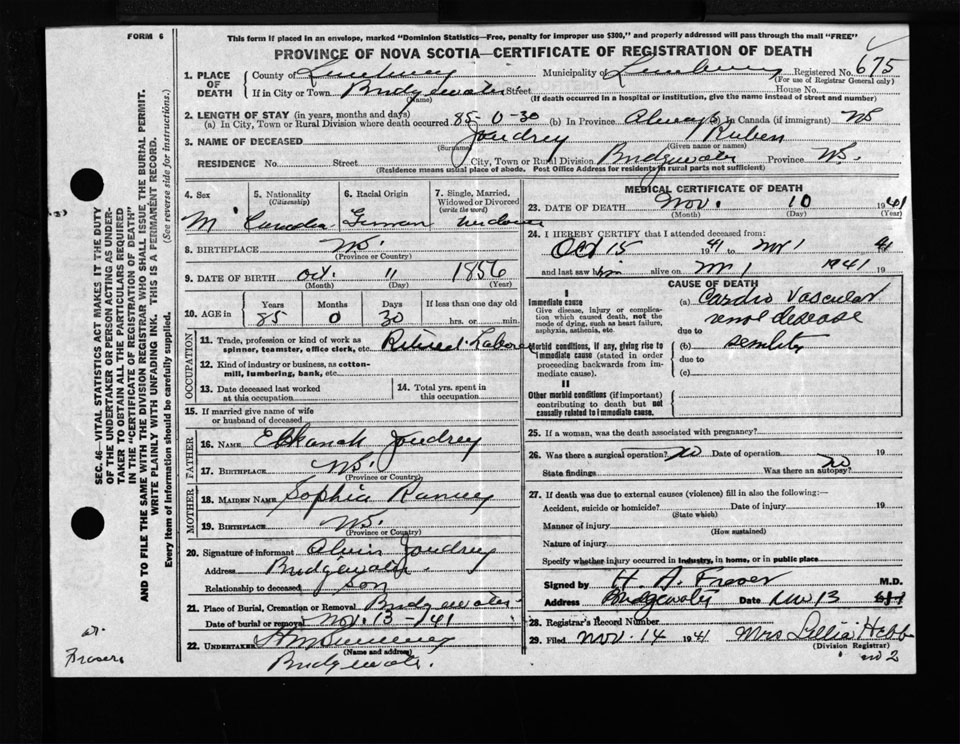 FORM 6
This form if placed in an envelope, marked "Dominion Statistics—Free, penalty for improper use $300," and properly addressed will pass through the mail "FREE"
PROVINCE OF NOVA SCOTIA—CERTIFICATE OF REGISTRATION OF DEATH
1. PLACE OF DEATH
County of Lunenburg Municipality of Lunenburg Registered No. 675
(For use of Registrar General only)
If in City or Town Bridgewater Street House No.
(Name) (If death occurred in a hospital or institution, give the name instead of street and number)
2. LENGTH OF STAY (in years, months and days)
(a) In City, Town or Rural Division where death occurred 85-0-30 (b) In Province Always (c) In Canada (if immigrant) NS
3. NAME OF DECEASED Joudrey Ruben
(Surname) (Given name or names)
RESIDENCE No. Street City, Town or Rural Division Bridgewater Province NS.
(Residence means usual place of abode. Post Office Address for residents in rural parts not sufficient)
4. Sex
M
5. Nationality
(Citizenship)
Canadian
6. Racial Origin
German
7. Single, Married, Widowed or Divorced
(write the word)
widower
8. BIRTHPLACE NS.
(Province or Country)
9. DATE OF BIRTH Oct. 11 1856
(Month) (Day) (Year)
10. AGE in
Years Months Days If less than one day old
85 0 30 hrs. or min.
OCCUPATION
11. Trade, profession or kind of work as
spinner, teamster, office clerk, etc. Retired Laborer
12. Kind of industry or business, as cotton-
mill, lumbering, bank, etc.
13. Date deceased last worked
at this occupation
14. Total yrs. spent in
this occupation
15. If married give name of wife
or husband of deceased
FATHER
16. NAME Elkanah Joudrey
17. BIRTHPLACE NS.
(Province or Country)
MOTHER
18. MAIDEN NAME Sophia Ramey
19. BIRTHPLACE NS.
(Province or Country)
20. Signature of informant Alvin Joudrey
Address Bridgewater
Relationship to deceased Son
21. Place of Burial, Cremation or Removal Bridgewater
Date of burial or removal Nov. 13-/41
22. UNDERTAKER
(Name and address)
Bridgewater.
MEDICAL CERTIFICATE OF DEATH
23. DATE OF DEATH Nov. 10 1941
(Month) (Day)
24. I HEREBY CERTIFY that I attended deceased from:
Oct 15 1941 to Nov 1 41
and last saw him alive on Nov 1 1941 19
CAUSE OF DEATH
I
Immediate cause
Give disease, injury or complica-
tion which caused death, not the
mode of dying, such as heart failure,
asphyxia, asthenia, etc.
(a) Cardio Vascular
renal disease
due to
Morbid conditions, if any, giving rise to
immediate cause (stated in order
proceeding backwards from im-
mediate cause).
(b) senility
due to
(c)
II
Other morbid conditions (if important)
contributing to death but not
causally related to immediate cause.
25. If a woman, was the death associated with pregnancy?
26. Was there a surgical operation? no Date of operation 19
State findings Was there an autopsy? no
27. If death was due to external causes (violence) fill in also the following:—
Accident, suicide or homicide? Date of injury 19
(State which)
Manner of injury
(How sustained)
Nature of injury
Specify whether injury occurred in industry, in home, or in public place
Signed by H. A. Fraser M.D.
Address Bridgewater Date Nov 13
28. Registrar's Record Number
29. Filed Nov. 14 1941 Mrs Lillia Hebb
(Division Registrar)
no 2
SEC. 46—VITAL STATISTICS ACT MAKES IT THE DUTY
OF THE UNDERTAKER OR PERSON ACTING AS UNDER-
TAKER TO OBTAIN ALL THE PARTICULARS REQUIRED
IN THE "CERTIFICATE OF REGISTRATION OF DEATH"
AND TO FILE THE SAME WITH THE DIVISION REGISTRAR WHO SHALL ISSUE THE BURIAL PERMIT.
WRITE PLAINLY WITH UNFADING INK. THIS IS A PERMANENT RECORD.
Every item of information should be carefully supplied. (See reverse side for instructions.)
Fraser